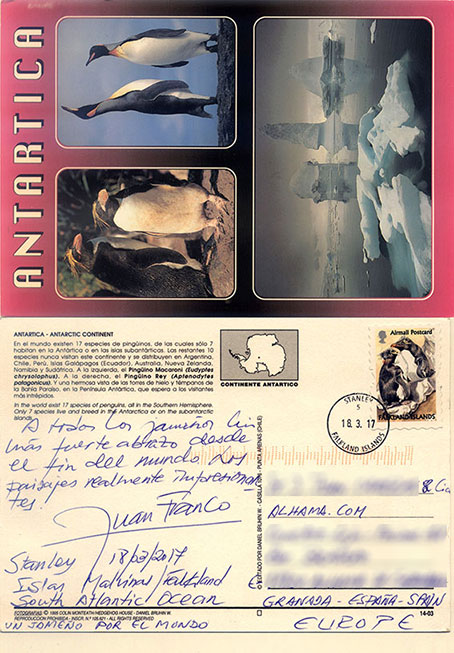 ANTARTICA
ANTARTICA - ANTARCTIC CONTINENT
En el mundo existen 17 especies de pingüinos, de las cuales sólo 7
habitan en la Antártica o en las islas subantárticas. Las restantes 10
especies nunca visitan este continente y se distribuyen en Argentina,
Chile, Perú, Islas Galápagos (Ecuador), Australia, Nueva Zelanda,
Namibia y Sudáfrica. A la izquierda, el Pingüino Macaroni (Eudyptes
chrysolophus). A la derecha, el Pingüino Rey (Aptenodytes
patagonicus). Y una hermosa vista de los torres de hielo y témpanos de
la Bahía Paraíso, en la Península Antártica, que espera a los visitantes
más intrépidos.
In the world exist 17 species of penguins, all in the Southern Hemisphere.
Only 7 species live and breed in the Antarctica or on the subantarctic
islands.
CONTINENTE ANTARTICO
Airmail Postcard
FALKLAND ISLANDS
STANLEY
5
18.3.17
FALKLAND ISLANDS
A todos los jameños un
más fuerte abrazo desde
el fin del mundo. Hay
paisajes realmente impresionan
tes.
Juan Franco
Stanley 18/03/2017
Islas Malvinas Falkland
South Atlantic Ocean
UN JAMEÑO POR EL MUNDO
FOTOGRAFIAS: © 1995 COLIN MONTEATH HEDGEHOG HOUSE - DANIEL BRUHIN W.
REPRODUCCION PROHIBIDA - INSCR. N.º 105.821 - DANIEL BRUHIN W.
© EDITADO POR DANIEL BRUHIN W. - CASILLA - PUNTA ARENAS (CHILE)
& Cia
ALHAMA.COM
GRANADA - ESPAÑA - SPAIN
14-03
EUROPE